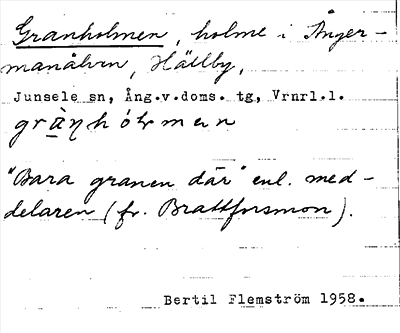 Granholmen, holme i Ånger-
manälven, Hällby,
Junsele sn, Ång.v.doms. tg, Vrnrl.l.
"Bara granen där" enl. med-
delaren (fr. Brattforsmon).
Bertil Flemström 1958.